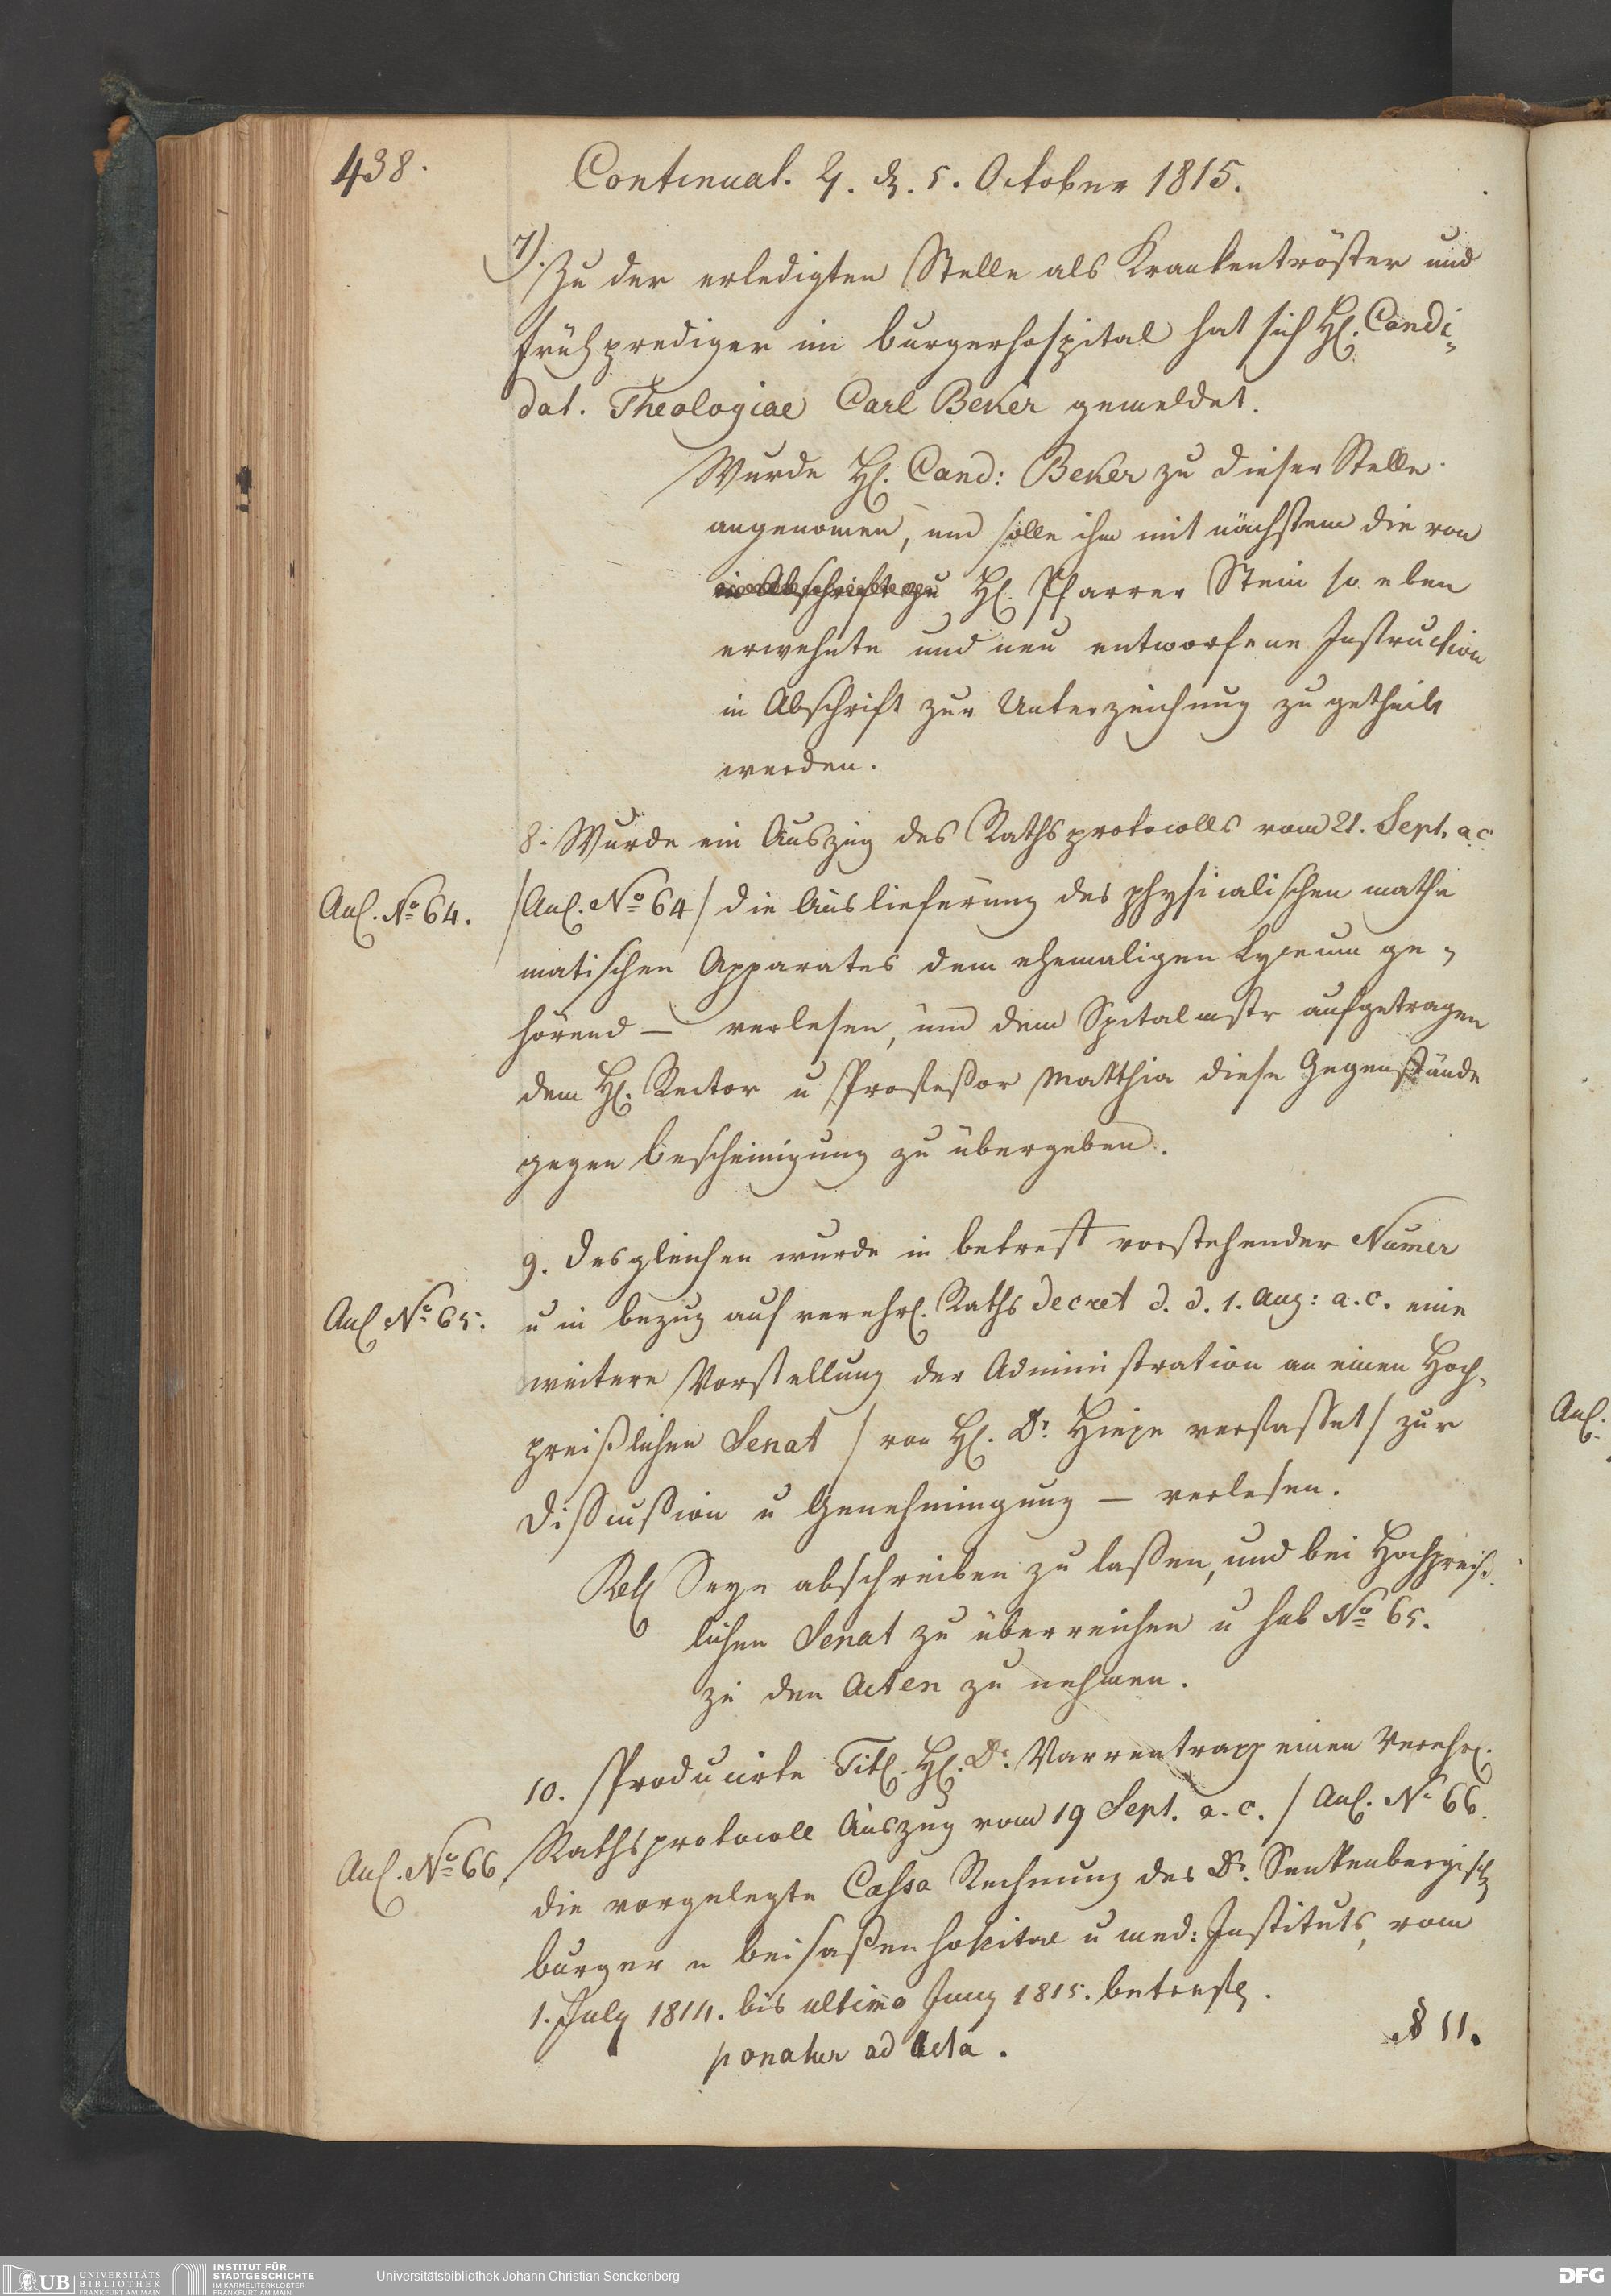 438.
Continuat. 4. d. 5. October 1815.
7). Zu der erledigten Stelle als Krankentröster und
Frühprediger im burgerhospital hat sich H. Candi„
dat. Theologiae Carl Beker gemeldet.
Wurde H. Cand: Beker zu dieser Stelle
angenomen, und solle ihm mit nächstem die von
in Abschrift zu H. Pfarrer Stein so eben
erwehnte und neu entworfene Instruction
in Abschrift zur Unterzeichnung zu getheilt
werden.
8. Wurde ein Auszug des Rathsprotocolls vom 21. Sept. a.c
Anl. No 64.
/Anl. No 64/ die Auslieferung des physicalischen mathe
matischen Apparates dem ehemaligen Lyceum ge„
hörend — verlesen, und dem Spitalmstr aufgetragen
dem H. Rector u Profeßor Matthia diese Gegenstände
gegen bescheinigung zu übergeben.
9. Desgleichen wurde in betreff vorstehender Numer
Anl No 65.
u in bezug auf verehrl. Raths decret d. d. 1. Aug: a. c. eine
weitere Vorstellung der Administration an einen Hoch„
preißlichen Senat / von H. Dr. Hiepe verfasset / zur
Discussion u Genehmigung — verlesen.
Rel Seye abschreiben zu laßen, und bei Hochpreiß
lichen Senat zu überreichen u sub No 65.
zu den Acten zu nehmen.
10. Producirte Titl. H. Dr. Varrentrapp einen verehrl.
Rathsprotocoll Auszug vom 19 Sept. a. c. / Anl. No 66.
Anl. No 66
die vorgelegte Cassa Rechnung des Dr. Senkenbergisch
burger u beisaßen hospital u med: Instituts, vom
1. July 1814. bis ultimo Juny 1815. betreff.
ponatur ad Acta.
§ 11.
Anl.
UB UNIVERSITÄTS
BIBLIOTHEK
FRANKFURT AM MAIN
INSTITUT FÜR
STADTGESCHICHTE
IM KARMELITERKLOSTER
FRANKFURT AM MAIN
Universitätsbibliothek Johann Christian Senckenberg
DFG